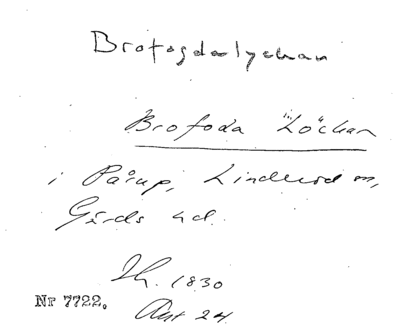 Brofogdalyckan
Brofoda "Löckan
i Pårup, Linderöd sn,
Gärds hd.
Sk. 1830
Nr 7722. Akt 24